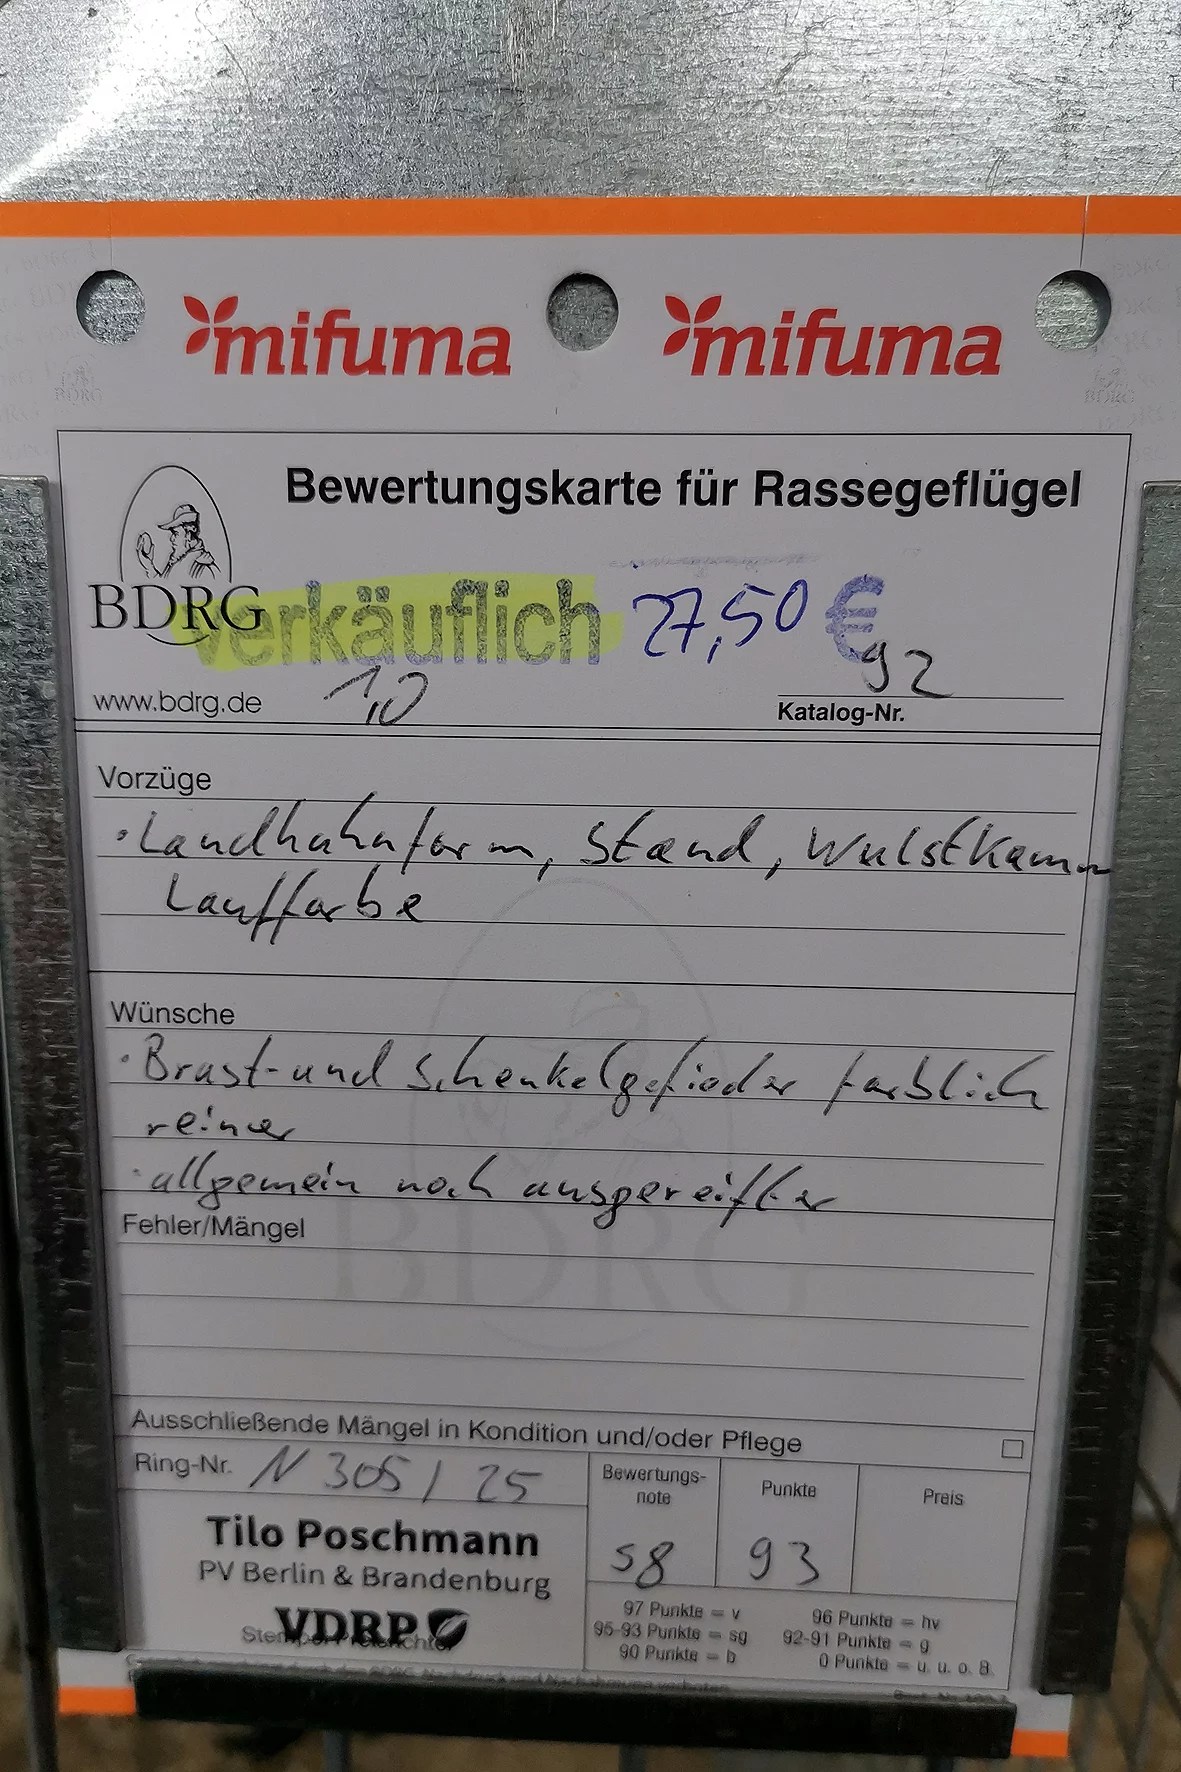 mifuma mifuma
Bewertungskarte für Rassegeflügel
BDRG
verkäuflich 27,50 €
www.bdrg.de
1,0
92
Katalog-Nr.
Vorzüge
· Landhahnform, Stand, Wulstkamm
Lauffarbe
Wünsche
· Brust- und Schenkelgefieder farblich
reiner
· allgemein noch ausgereifter
Fehler/Mängel
BDRG
Ausschließende Mängel in Kondition und/oder Pflege
Ring-Nr. N 305 / 25
Bewertungs-
note
Punkte
Preis
sg
93
Tilo Poschmann
PV Berlin & Brandenburg
VDRP
97 Punkte = v 96 Punkte = hv
95-93 Punkte = sg 92-91 Punkte = g
90 Punkte = b 0 Punkte = u. u. o. B.